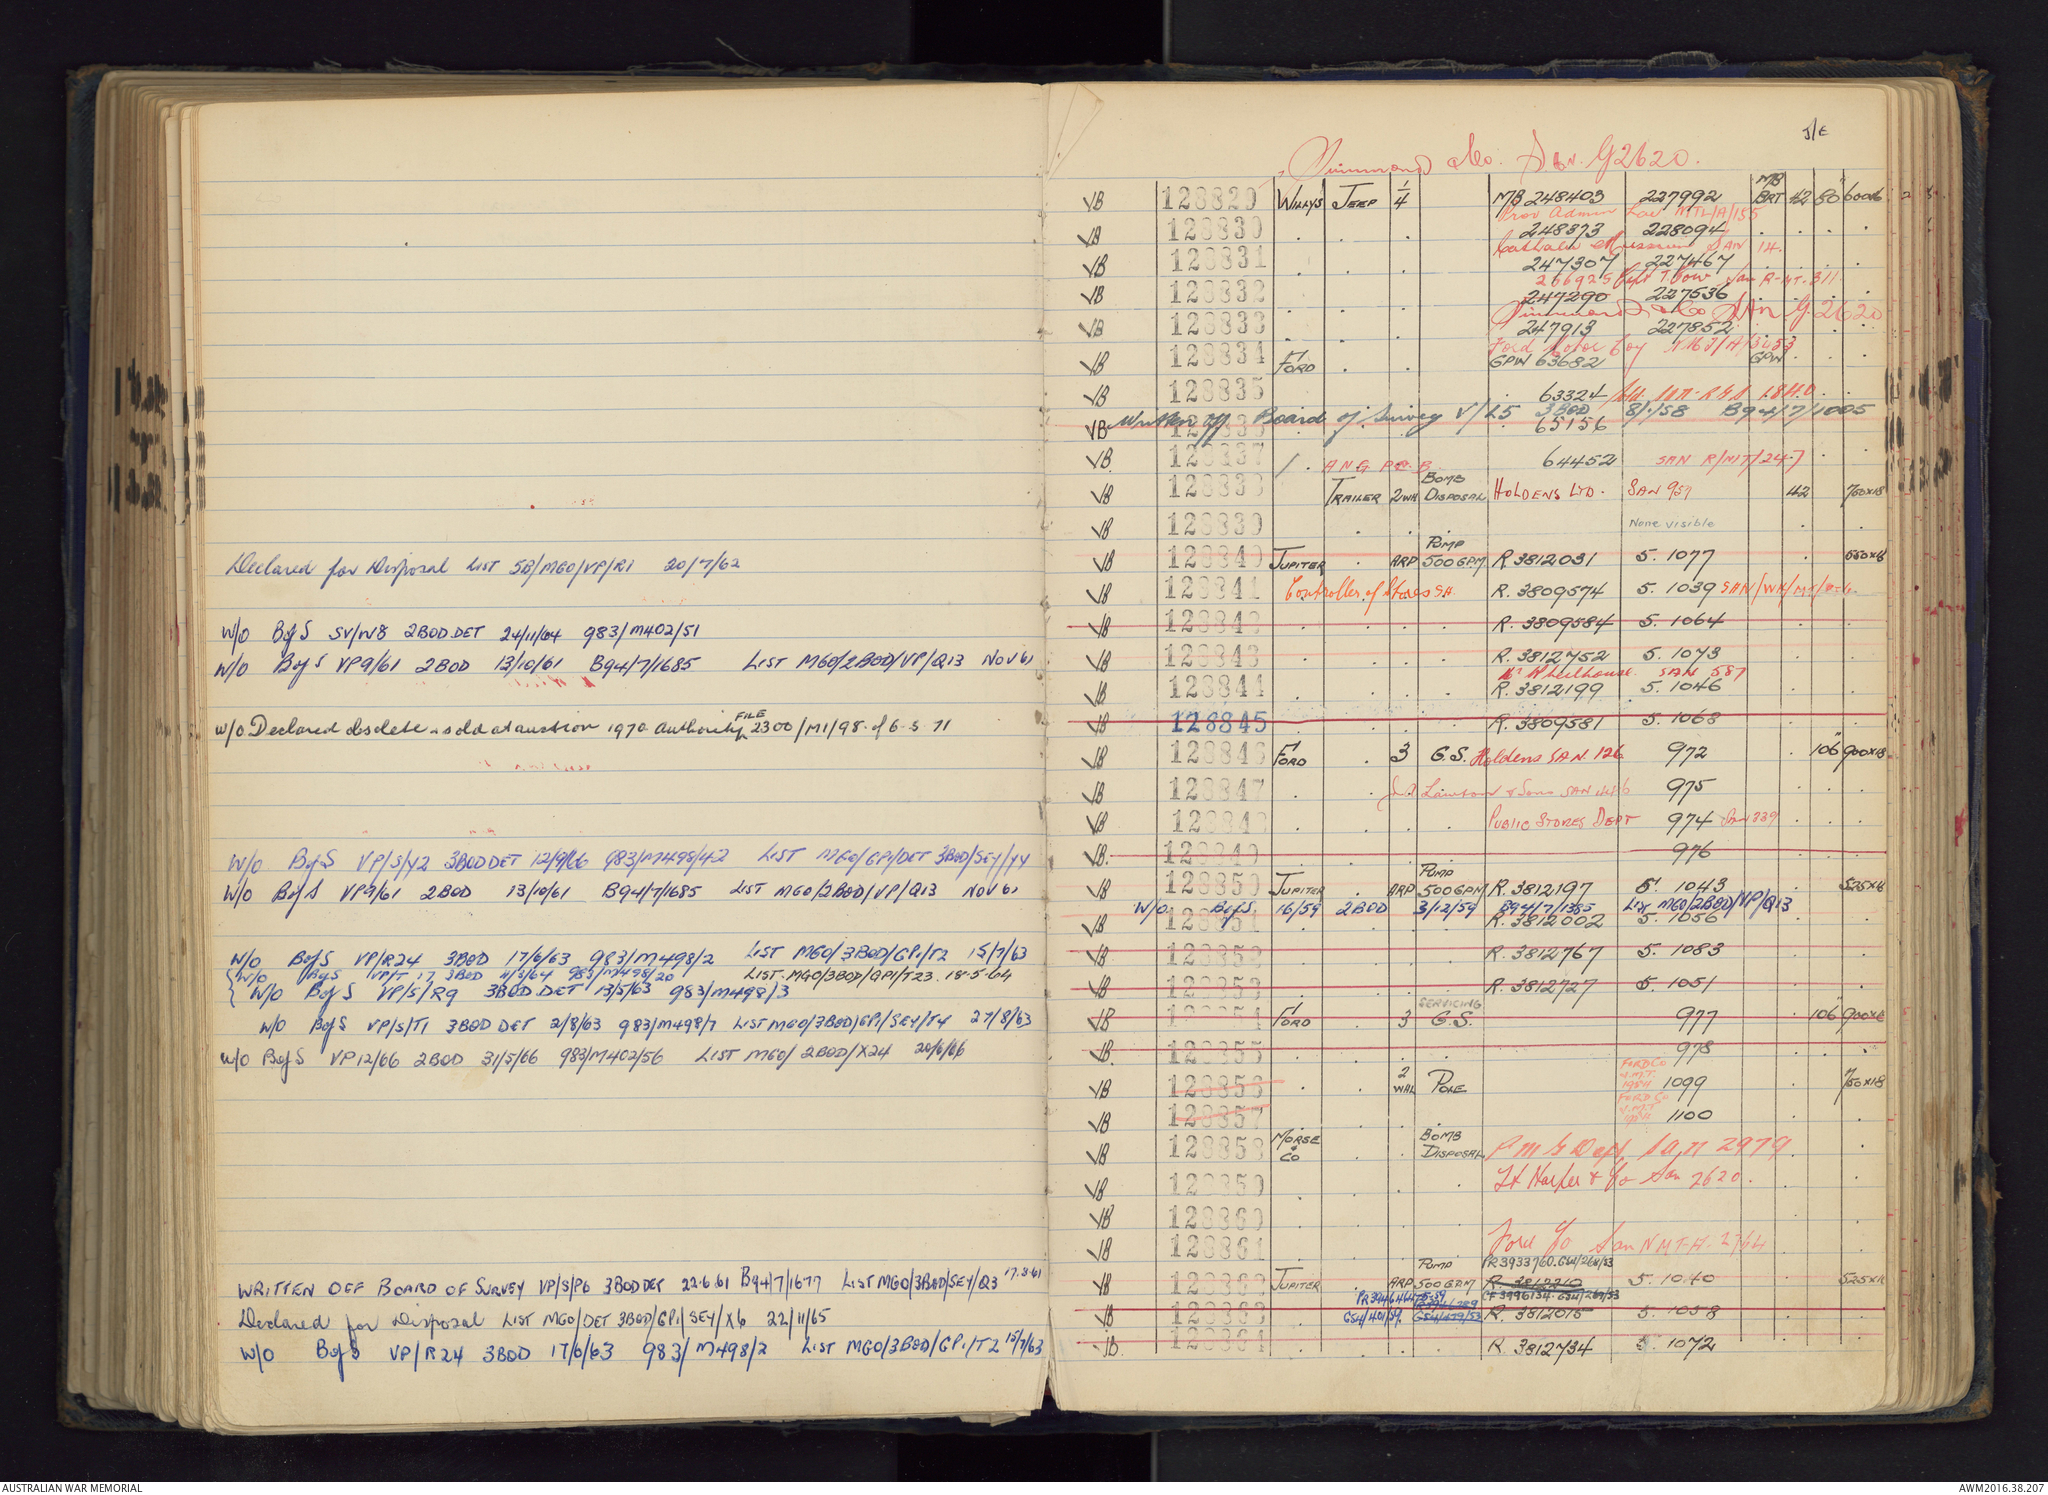 Declared for Disposal LIST 5B/MGO/VP/R1 20/7/62
W/O B of S SV/W8 2BOD.DET 24/11/64 983/M402/51
W/O B of S VP9/61 2BOD 13/10/61 B94/7/1685 LIST MGO/2BOD/VP/Q13 NOV 61
W/O Declared obsolete - sold at auction 1970 Authority FILE 2300/M1/98 of 6-5-71
W/O B of S VP/S/Y2 3BOD DET 12/9/66 983/M498/42 LIST MGO/GP1/DET 3BOD/SEY/YY
W/O B of S VP9/61 2BOD 13/10/61 B94/7/1685 LIST MGO/2BOD/VP/Q13 NOV 61
W/O B of S VP/R24 3BOD 17/6/63 983/M498/2 LIST MGO/3BOD/GP1/T2 15/7/63
W/O B of S VP/T 17 3BOD 11/3/64 983/M498/20 LIST. MGO/3BOD/GP1/T23. 18.5.64
W/O B of S VP/S/R9 3BOD.DET 13/5/63 983/M498/3
W/O B of S VP/S/T1 3BOD DET 2/8/63 983/M498/7 LIST MGO/3BOD/GP1/SEY/T4 27/8/63
W/O B of S VP12/66 2BOD 31/5/66 983/M402/56 LIST MGO/2BOD/X24 20/6/66
WRITTEN OFF BOARD OF SURVEY VP/S/P6 3BOD DET 22.6.61 B94/7/1677 LIST MGO/3BOD/SEY/Q3 17.8.61
Declared for Disposal LIST MGO/DET 3BOD/GP1/SEY/X6 22/11/65
W/O B of S VP/R24 3BOD 17/6/63 983/M498/2 LIST MGO/3BOD/GP1/T2 15/7/63
J/E
Simmonds & Co. San. G2620.
VB 128829 WILLYS JEEP 1/4 MB 248403 227992 MB BRT 42 80" 600x16
VB 128830 . . . 248873 228094 . . . .
VB 128831 . . . 247307 227467 . . .
VB 128832 . . . 247290 227636 . . . .
Simmonds & Co San G.2620
VB 128833 . . . 247913 227852 . . .
Ford Motor Coy
VB 128834 FORD . . GPW 63682 GPW . . .
VB 128835 63324
Written off Board of Survey V/25 3BOD 8/1/58 B94/7/1005
VB 128836 65156
VB 128837 64452 SAN R/MT/247
VB 128838 TRAILER 2WH BOMB DISPOSAL HOLDENS LTD. SAN 957 42 750x18
VB 128839 . . . None visible . .
VB 128840 JUPITER . ARP PUMP 500 GPM R.3812031 5.1077 . 550x18
VB 128841 Controller of Stores SA. R.3809574 5.1039
VB 128842 . . . . R.3809584 5.1064 . .
VB 128843 . . . . R.3812752 5.1073 . .
Mr Wheelhouse SAN 587
VB 128844 . . . . R.3812199 5.1046 . .
VB 128845 . . . R.3809581 5.1068 . .
VB 128846 FORD . 3 G.S. Holdens SAN. 126 972 . 106" 900x18
VB 128847 . . Lawson & Sons SAN 975 . . .
VB 128848 . . . . PUBLIC STORES DEPT 974 San 339 . . .
VB. 128849 976
VB 128850 JUPITER . ARP PUMP 500 GPM R.3812197 5.1043 . 525x18
W/O. B of S 16/59 2BOD 3/12/59 B94/7/1385 List MGO/2BOD/VP/Q13
VB 128851 . . . . R.3812002 5.1056
VB 128852 . . . . R.3812767 5.1083 . .
VB 128853 . . . . R.3812727 5.1051 . .
VB 128854 FORD . 3 SERVICING G.S. 977 . 106" 900x18
VB. 128855 978
VB 128856 . . 2 WHL POLE FORD CO V.M.T. 1099 . 750x18
VB 128857 . . . . FORD CO V.M.T 1100 . .
VB 128858 MORSE & CO . . BOMB DISPOSAL P.M.G Dept San 2979
VB 128859 . . . . San 2620.
VB 128860 . . . .
VB 128861 . . . . Ford Co San NMT-H. 2764
VB 128862 JUPITER . ARP PUMP 500 GPM PR3933760. GS4/264/53 R.3812210 5.1040 . 525x18
VB 128863 R.3812015 5.1058
VB. 128864 . . . . R.3812734 5.1072 . .
AUSTRALIAN WAR MEMORIAL
AWM2016.38.207